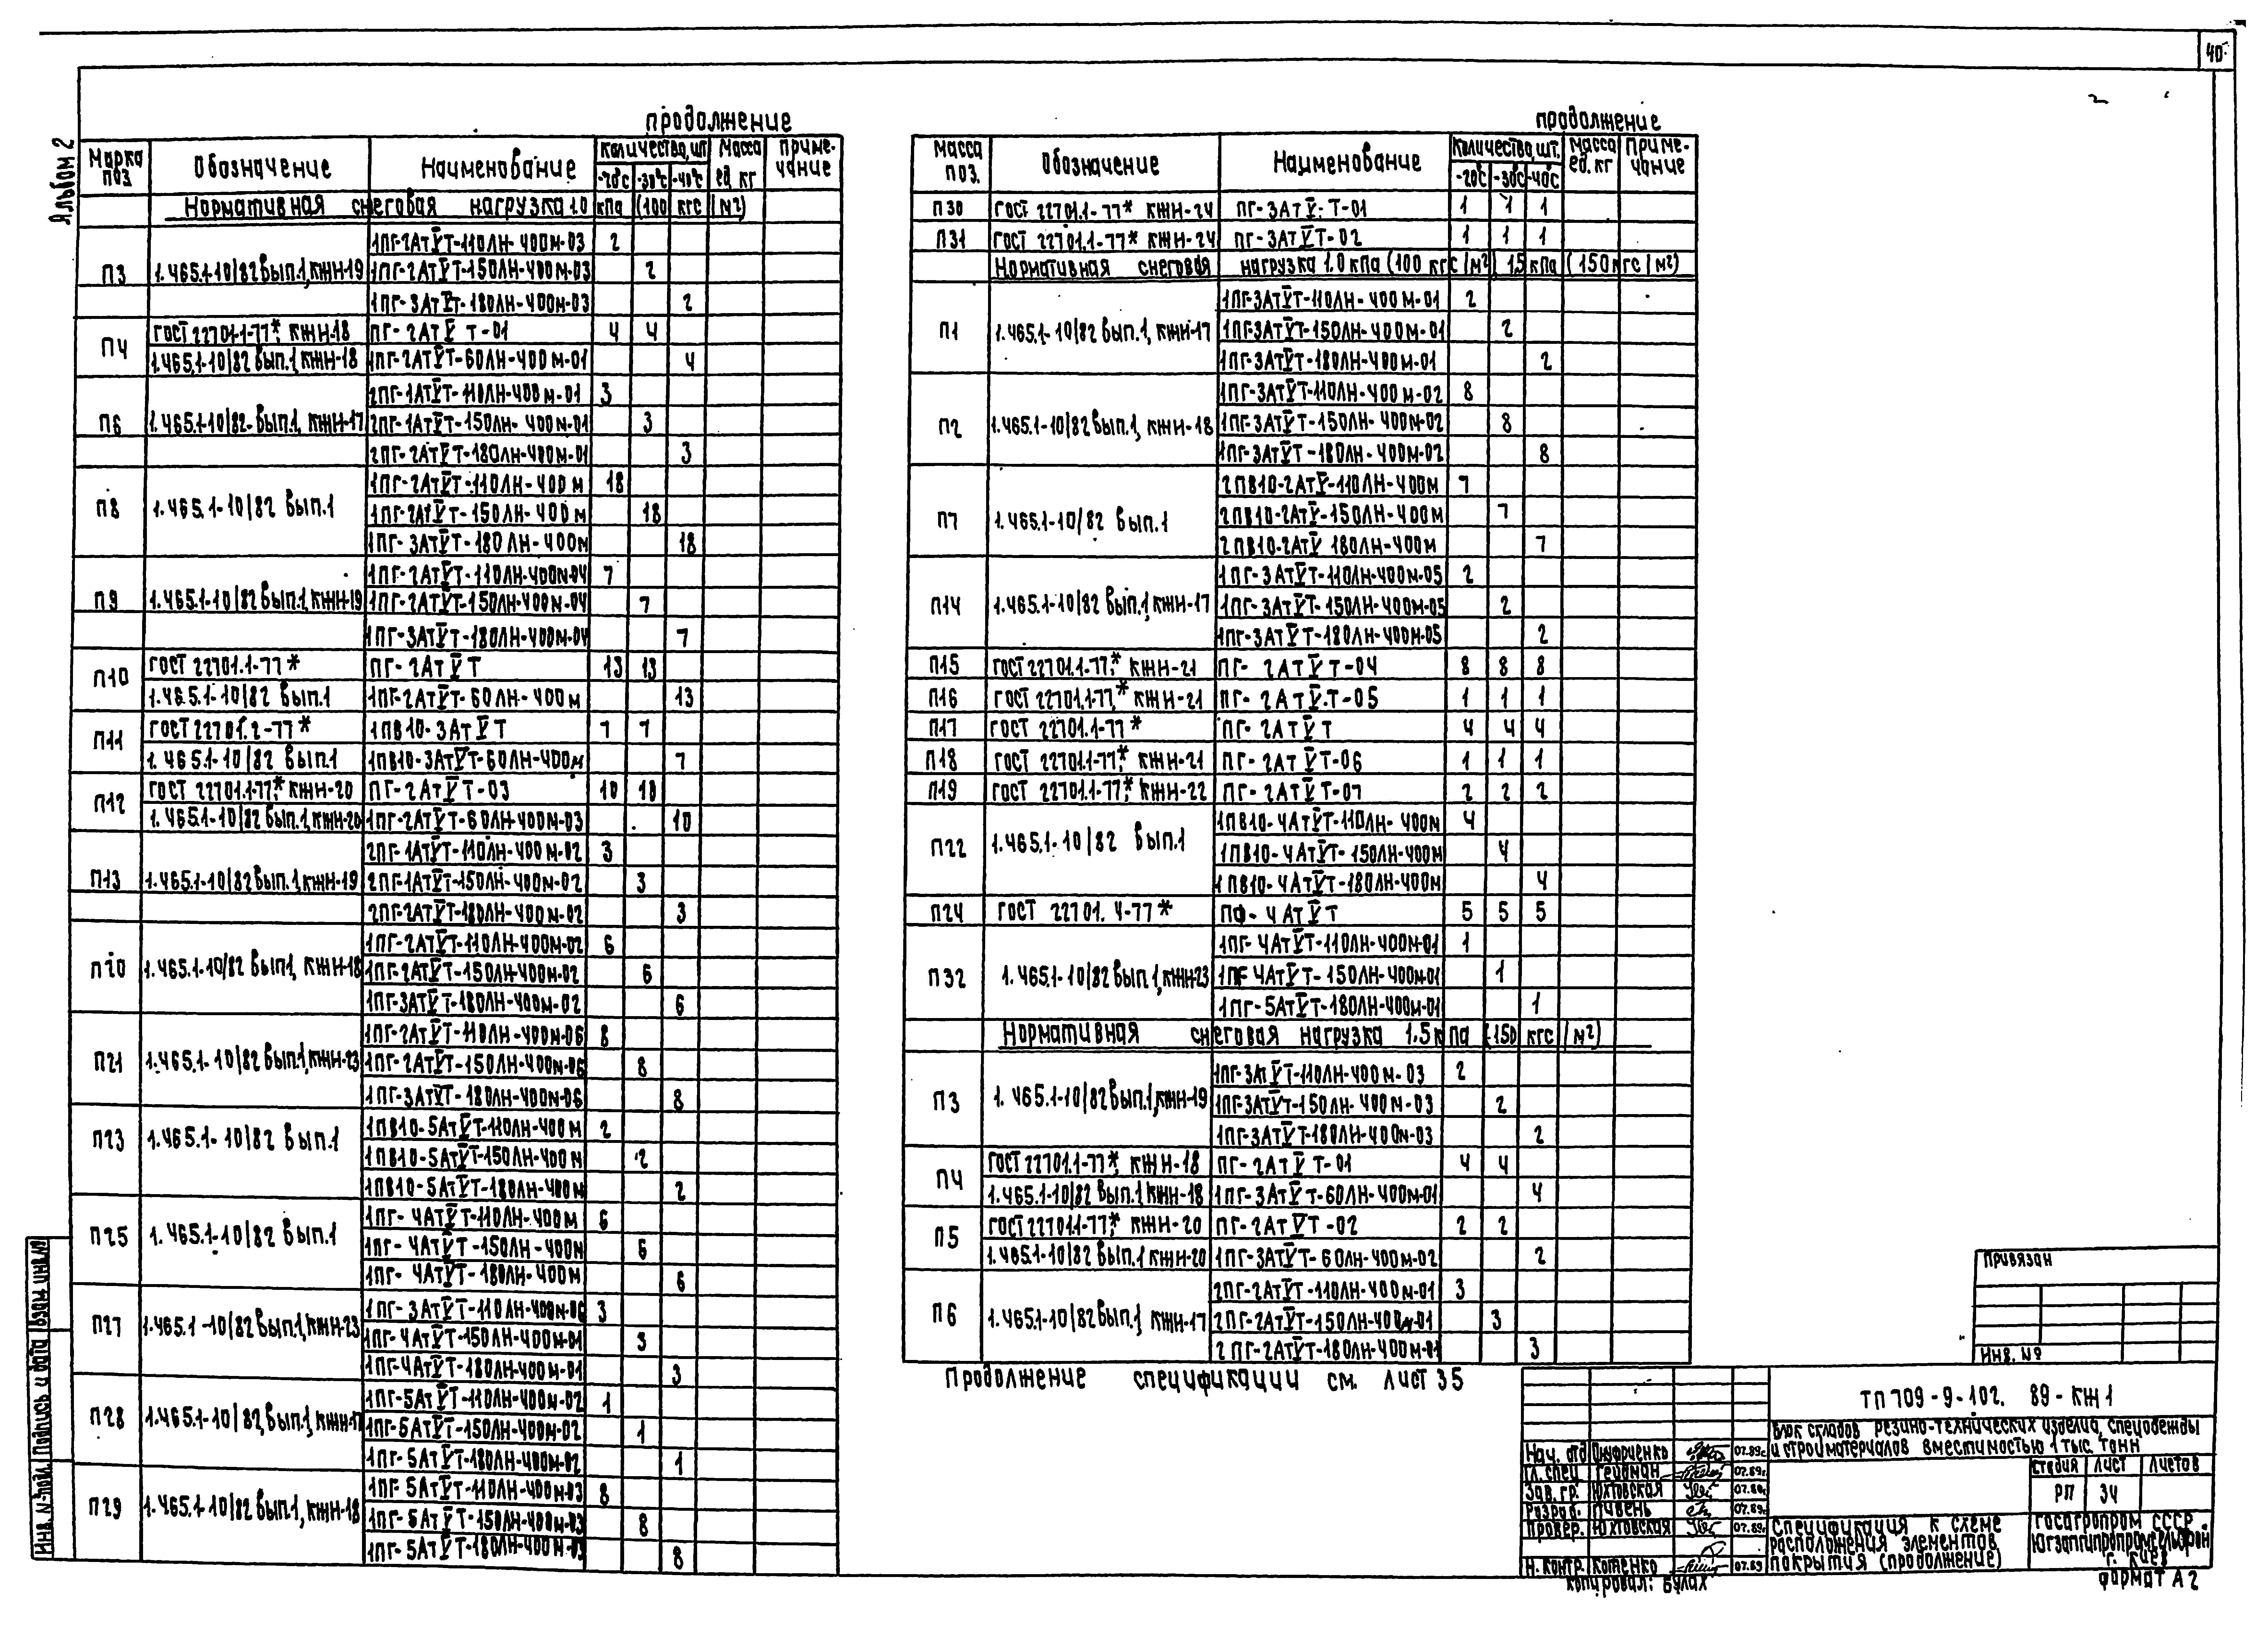 40
Альбом 2
продолжение
Марка поз. Обозначение Наименование Количество, шт. Масса ед. кг Примечание
-20°С -30°С -40°С
Нормативная снеговая нагрузка 1.0 кПа (100 кгс/м²)
П3 1.465.1-10/82 Вып.1, КЖН-19 1ПГ-2АтV̅Т-110ЛН-400м-03 2
1ПГ-2АтV̅Т-150ЛН-400м-03 2
1ПГ-3АтV̅Т-180ЛН-400м-03 2
П4 ГОСТ 22701.1-77* КЖН-18 ПГ-2АтV̅Т-01 4 4
1.465.1-10/82 Вып.1, КЖН-18 1ПГ-2АтV̅Т-60ЛН-400м-01 4
П6 1.465.1-10/82 Вып.1, КЖН-17 2ПГ-1АтV̅Т-110ЛН-400м-01 3
2ПГ-1АтV̅Т-150ЛН-400м-01 3
2ПГ-2АтV̅Т-180ЛН-400м-01 3
П8 1.465.1-10/82 Вып.1 1ПГ-2АтV̅Т-110ЛН-400м 18
1ПГ-2АтV̅Т-150ЛН-400м 18
1ПГ-3АтV̅Т-180ЛН-400м 18
П9 1.465.1-10/82 Вып.1, КЖН-19 1ПГ-2АтV̅Т-110ЛН-400м-04 7
1ПГ-2АтV̅Т-150ЛН-400м-04 7
1ПГ-3АтV̅Т-180ЛН-400м-04 7
П10 ГОСТ 22701.1-77* ПГ-2АтV̅Т 13 13
1.465.1-10/82 Вып.1 1ПГ-2АтV̅Т-60ЛН-400м 13
П11 ГОСТ 22701.2-77* 1ПВ10-3АтV̅Т 7 7
1.465.1-10/82 Вып.1 1ПВ10-3АтV̅Т-60ЛН-400м 7
П12 ГОСТ 22701.1-77* КЖН-20 ПГ-2АтV̅Т-03 10 10
1.465.1-10/82 Вып.1, КЖН-20 1ПГ-2АтV̅Т-60ЛН-400м-03 10
П13 1.465.1-10/82 Вып.1, КЖН-19 2ПГ-1АтV̅Т-110ЛН-400м-02 3
2ПГ-1АтV̅Т-150ЛН-400м-02 3
2ПГ-2АтV̅Т-180ЛН-400м-02 3
П20 1.465.1-10/82 Вып.1, КЖН-18 1ПГ-2АтV̅Т-110ЛН-400м-02 6
1ПГ-2АтV̅Т-150ЛН-400м-02 6
1ПГ-3АтV̅Т-180ЛН-400м-02 6
П21 1.465.1-10/82 Вып.1, КЖН-23 1ПГ-2АтV̅Т-110ЛН-400м-06 8
1ПГ-2АтV̅Т-150ЛН-400м-06 8
1ПГ-3АтV̅Т-180ЛН-400м-06 8
П23 1.465.1-10/82 Вып.1 1ПВ10-5АтV̅Т-110ЛН-400м 2
1ПВ10-5АтV̅Т-150ЛН-400м 2
1ПВ10-5АтV̅Т-180ЛН-400м 2
П25 1.465.1-10/82 Вып.1 1ПГ-4АтV̅Т-110ЛН-400м 6
1ПГ-4АтV̅Т-150ЛН-400м 6
1ПГ-4АтV̅Т-180ЛН-400м 6
П27 1.465.1-10/82 Вып.1, КЖН-23 1ПГ-3АтV̅Т-110ЛН-400м-06 3
1ПГ-4АтV̅Т-150ЛН-400м-01 3
1ПГ-4АтV̅Т-180ЛН-400м-01 3
П28 1.465.1-10/82, Вып.1, КЖН-17 1ПГ-5АтV̅Т-110ЛН-400м-02 1
1ПГ-5АтV̅Т-150ЛН-400м-02 1
1ПГ-5АтV̅Т-180ЛН-400м-02 1
П29 1.465.1-10/82 Вып.1, КЖН-18 1ПГ-5АтV̅Т-110ЛН-400м-03 8
1ПГ-5АтV̅Т-150ЛН-400м-03 8
1ПГ-5АтV̅Т-180ЛН-400м-03 8
продолжение
Масса поз. Обозначение Наименование Количество, шт. Масса ед. кг Примечание
-20°С -30°С -40°С
П30 ГОСТ 22701.1-77* КЖН-24 ПГ-3АтV̅Т-01 1 1 1
П31 ГОСТ 22701.1-77* КЖН-24 ПГ-3АтV̅Т-02 1 1 1
Нормативная снеговая нагрузка 1.0 кПа (100 кгс/м²) 1,5 кПа (150 кгс/м²)
П1 1.465.1-10/82 Вып.1, КЖН-17 1ПГ-3АтV̅Т-110ЛН-400м-01 2
1ПГ-3АтV̅Т-150ЛН-400м-01 2
1ПГ-3АтV̅Т-180ЛН-400м-01 2
П2 1.465.1-10/82 Вып.1, КЖН-18 1ПГ-3АтV̅Т-110ЛН-400м-02 8
1ПГ-3АтV̅Т-150ЛН-400м-02 8
1ПГ-3АтV̅Т-180ЛН-400м-02 8
П7 1.465.1-10/82 Вып.1 2ПВ10-2АтV̅-110ЛН-400м 7
2ПВ10-2АтV̅-150ЛН-400м 7
2ПВ10-2АтV̅ 180ЛН-400м 7
П14 1.465.1-10/82 Вып.1, КЖН-17 1ПГ-3АтV̅Т-110ЛН-400м-05 2
1ПГ-3АтV̅Т-150ЛН-400м-05 2
1ПГ-3АтV̅Т-180ЛН-400м-05 2
П15 ГОСТ 22701.1-77* КЖН-21 ПГ-2АтV̅Т-04 8 8 8
П16 ГОСТ 22701.1-77* КЖН-21 ПГ-2АтV̅Т-05 1 1 1
П17 ГОСТ 22701.1-77* ПГ-2АтV̅Т 4 4 4
П18 ГОСТ 22701.1-77* КЖН-21 ПГ-2АтV̅Т-06 1 1 1
П19 ГОСТ 22701.1-77* КЖН-22 ПГ-2АтV̅Т-07 2 2 2
П22 1.465.1-10/82 Вып.1 1ПВ10-4АтV̅Т-110ЛН-400м 4
1ПВ10-4АтV̅Т-150ЛН-400м 4
1ПВ10-4АтV̅Т-180ЛН-400м 4
П24 ГОСТ 22701.4-77* ПФ-4АтV̅Т 5 5 5
П32 1.465.1-10/82 Вып.1, КЖН-23 1ПГ-4АтV̅Т-110ЛН-400м-01 1
1ПГ-4АтV̅Т-150ЛН-400м-01 1
1ПГ-5АтV̅Т-180ЛН-400м-01 1
Нормативная снеговая нагрузка 1.5 кПа (150 кгс/м²)
П3 1.465.1-10/82 Вып.1, КЖН-19 1ПГ-3АтV̅Т-110ЛН-400м-03 2
1ПГ-3АтV̅Т-150ЛН-400м-03 2
1ПГ-3АтV̅Т-180ЛН-400м-03 2
П4 ГОСТ 22701.1-77* КЖН-18 ПГ-2АтV̅Т-01 4 4
1.465.1-10/82 Вып.1, КЖН-18 1ПГ-3АтV̅Т-60ЛН-400м-01 4
П5 ГОСТ 22701.1-77* КЖН-20 ПГ-2АтV̅Т-02 2 2
1.465.1-10/82 Вып.1 КЖН-20 1ПГ-3АтV̅Т-60ЛН-400м-02 2
П6 1.465.1-10/82 Вып.1, КЖН-17 2ПГ-2АтV̅Т-110ЛН-400м-01 3
2ПГ-2АтV̅Т-150ЛН-400м-01 3
2ПГ-2АтV̅Т-180ЛН-400м-01 3
Продолжение спецификации см. лист 35
Привязан
Инв. №
ТП 709-9-102.89-КЖ1
Блок складов резино-технических изделий, спецодежды
и стройматериалов вместимостью 1 тыс. тонн
Нач. отд Онуфриенко 07.89г
Гл. спец Гейдман 07.89г
Зав. гр. Юхтовская 07.89г
Разраб. Пивень 07.89г
Провер. Юхтовская 07.89г
Н. контр. Котенко 07.89
Стадия Лист Листов
РП 34
Спецификация к схеме
расположения элементов
покрытия (продолжение)
Госагропром СССР
Югзапгипропромсельстрой
г. Киев
Копировал: Булах
Формат А2
Инв. № подл. Подпись и дата Взам. инв. №